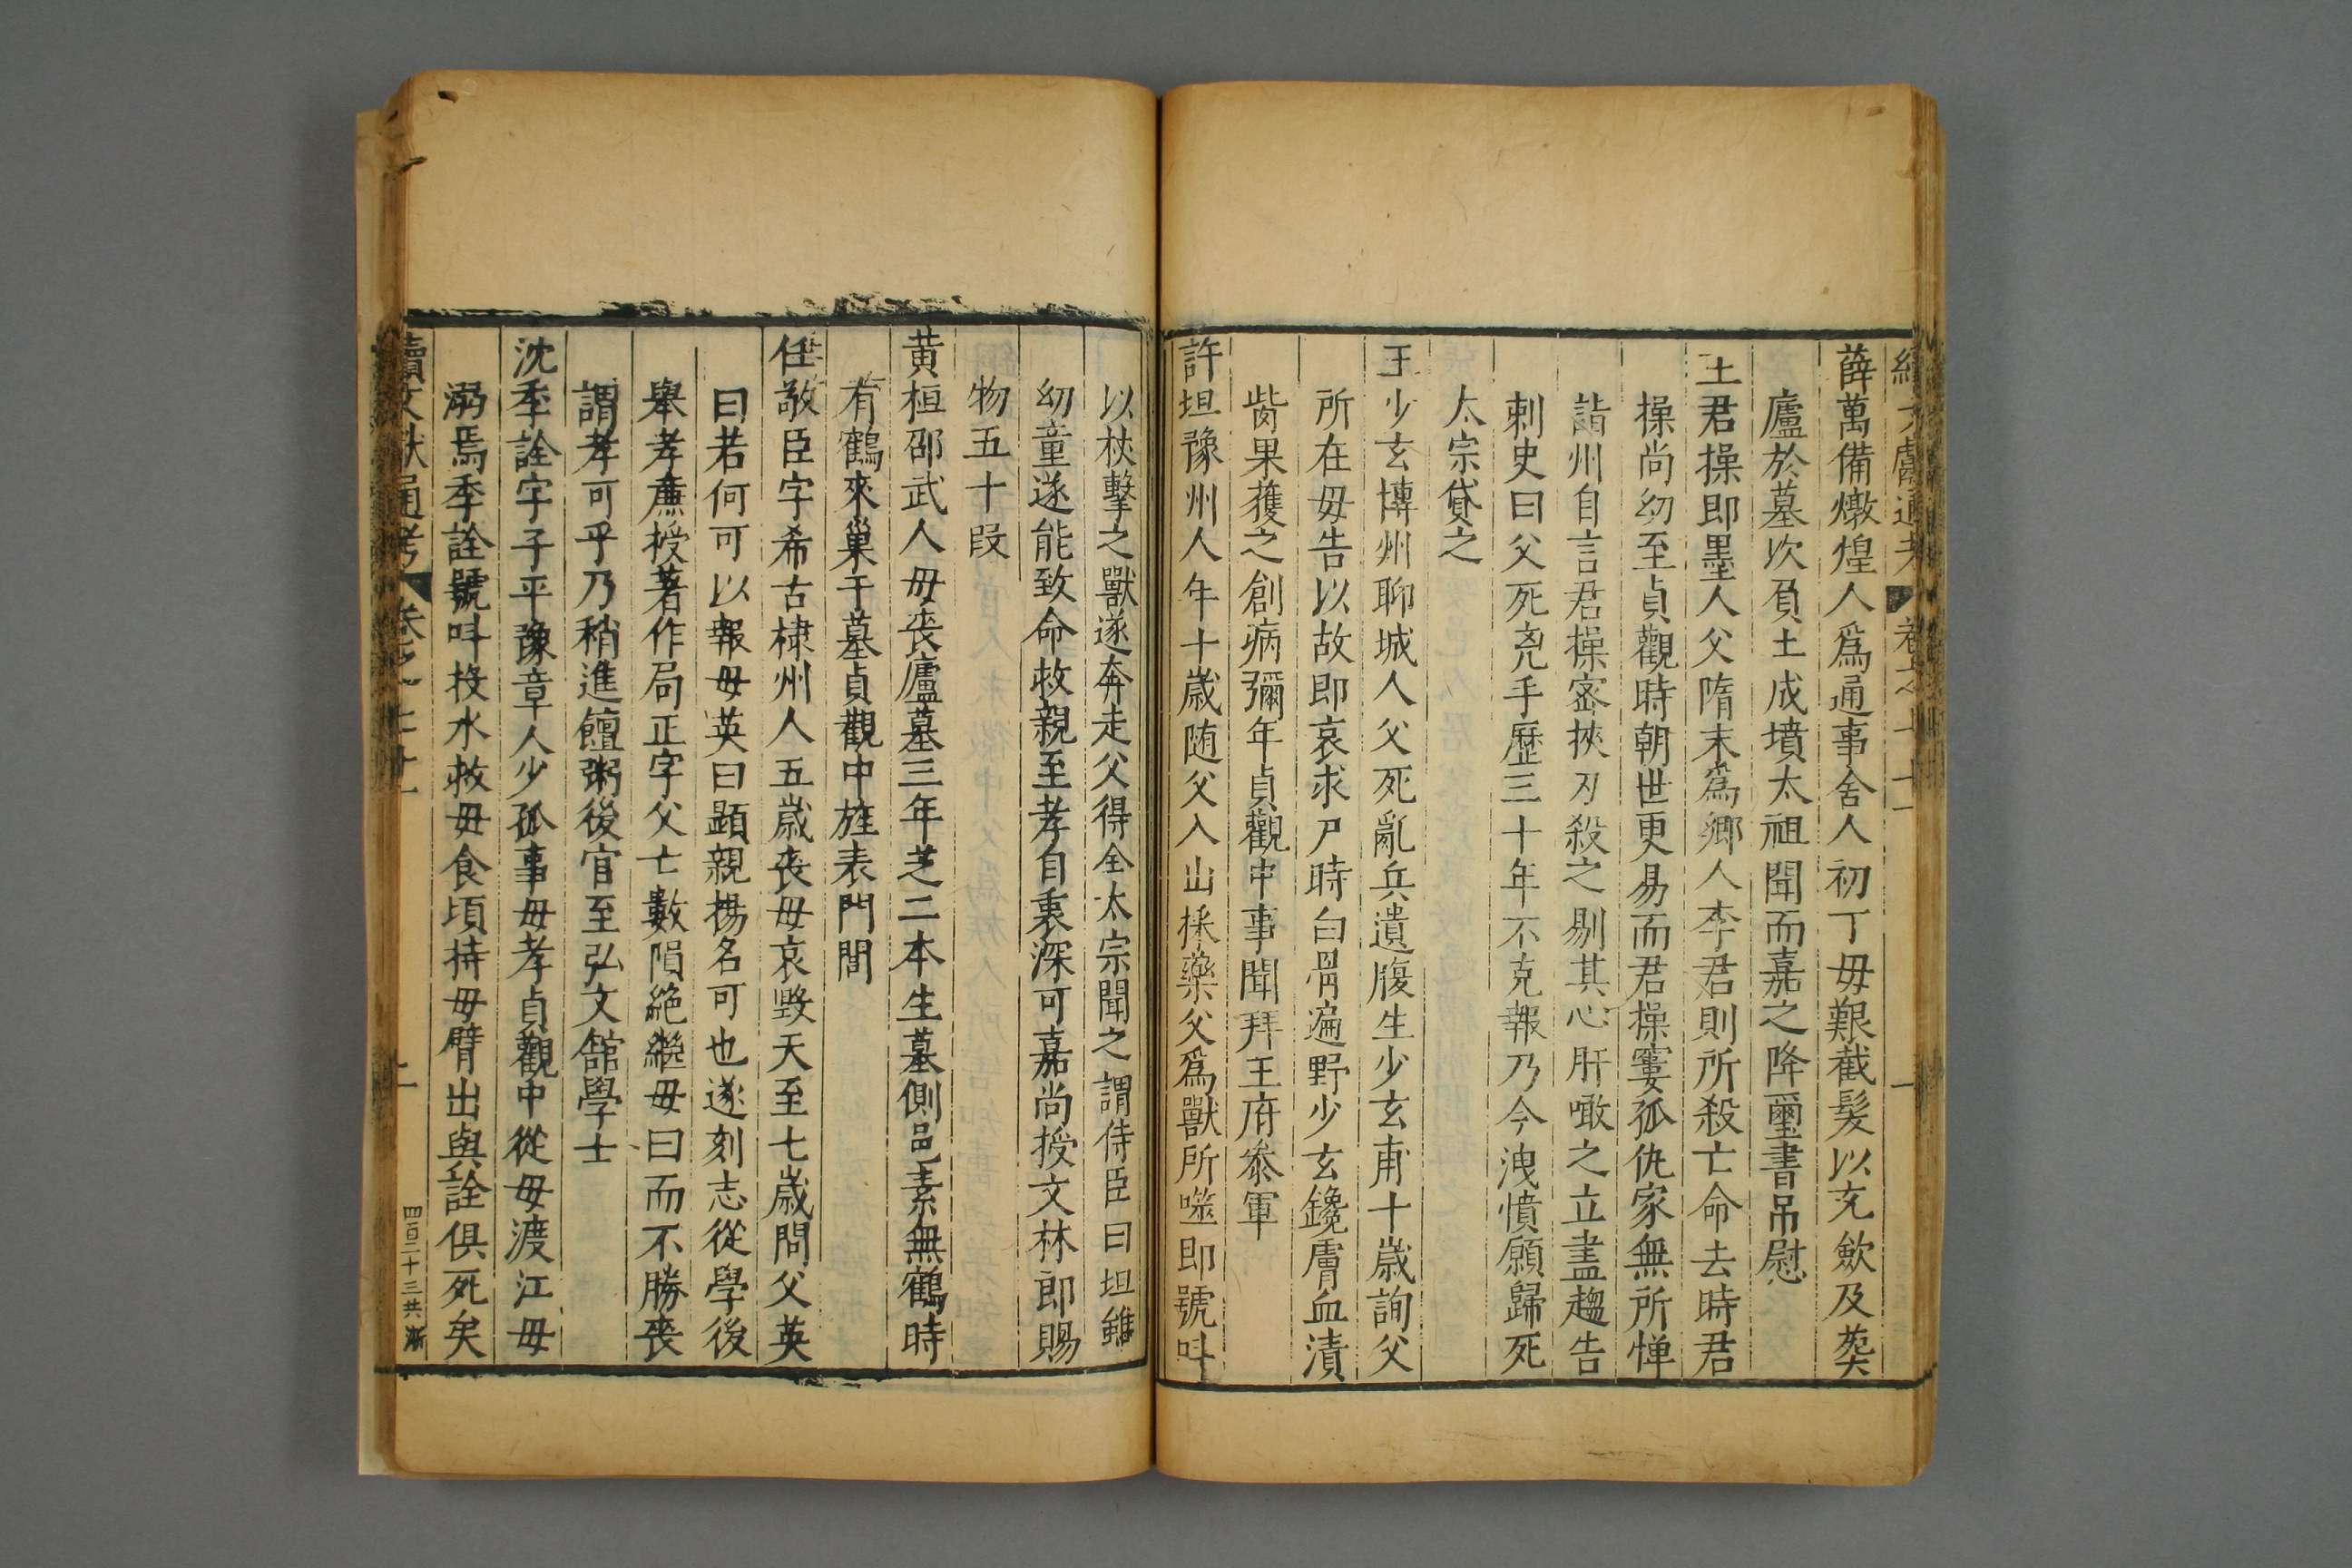 薛萬備燉煌人爲通事舍人初丁毋艱截髮以充歛及葬
廬於墓次負土成墳太祖聞而嘉之降璽書吊慰
王君操即墨人父隋末爲鄉人李君則所殺亡命去時君
操尚幼至貞觀時朝世更易而君操窶孤仇家無所憚
詣州自言君操密挾刃殺之剔其心肝噉之立盡趨告
剌史曰父死兇手歷三十年不克報乃今洩憤願歸死
太宗貸之
王少玄博州聊城人父死亂兵遺腹生少玄甫十歲詢父
所在毋告以故即哀求尸時白骨遍野少玄鑱膚血漬
而果獲之創病彌年貞觀中事聞拜王府叅軍
許坦豫州人年十歲随父入山採藥父爲獸所噬即號呌
以杖擊之獸遂奔走父得全太宗聞之謂侍臣曰坦雖
幼童遂能致命救親至孝自裏深可嘉尚授文林郎賜
物五十段
黃桓邵武人毋喪廬墓三年芝二本生墓側邑素無鶴時
有鶴來巢于墓貞觀中旌表門閭
任敬臣字希古棣州人五歲喪毋哀毀天至七歲問父英
曰若何可以報毋英曰顯親揚名可也遂刻志從學後
舉孝廉授著作局正字父亡數隕絶繼毋曰而不勝喪
謂孝可乎乃稍進饘粥後官至弘文舘學士
沈季詮字子平豫章人少孤事毋孝貞觀中從毋渡江毋
溺焉季詮號呌投水救毋食頃持毋臂出與詮俱死矣
續文獻通考 卷之七十一 二 四百二十三共